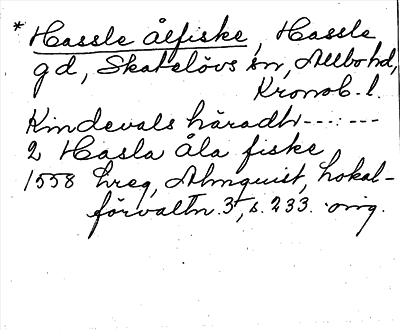 * Hassle ålfiske, Hassle
gd, Skatelövs sn, Allbo hd,
Kronob. l.
Kindevals häradtz ---:---
2 Hasla Åla fiske
1558 hreg, Almquist, Lokal-
förvaltn. 3, s. 233. orig.